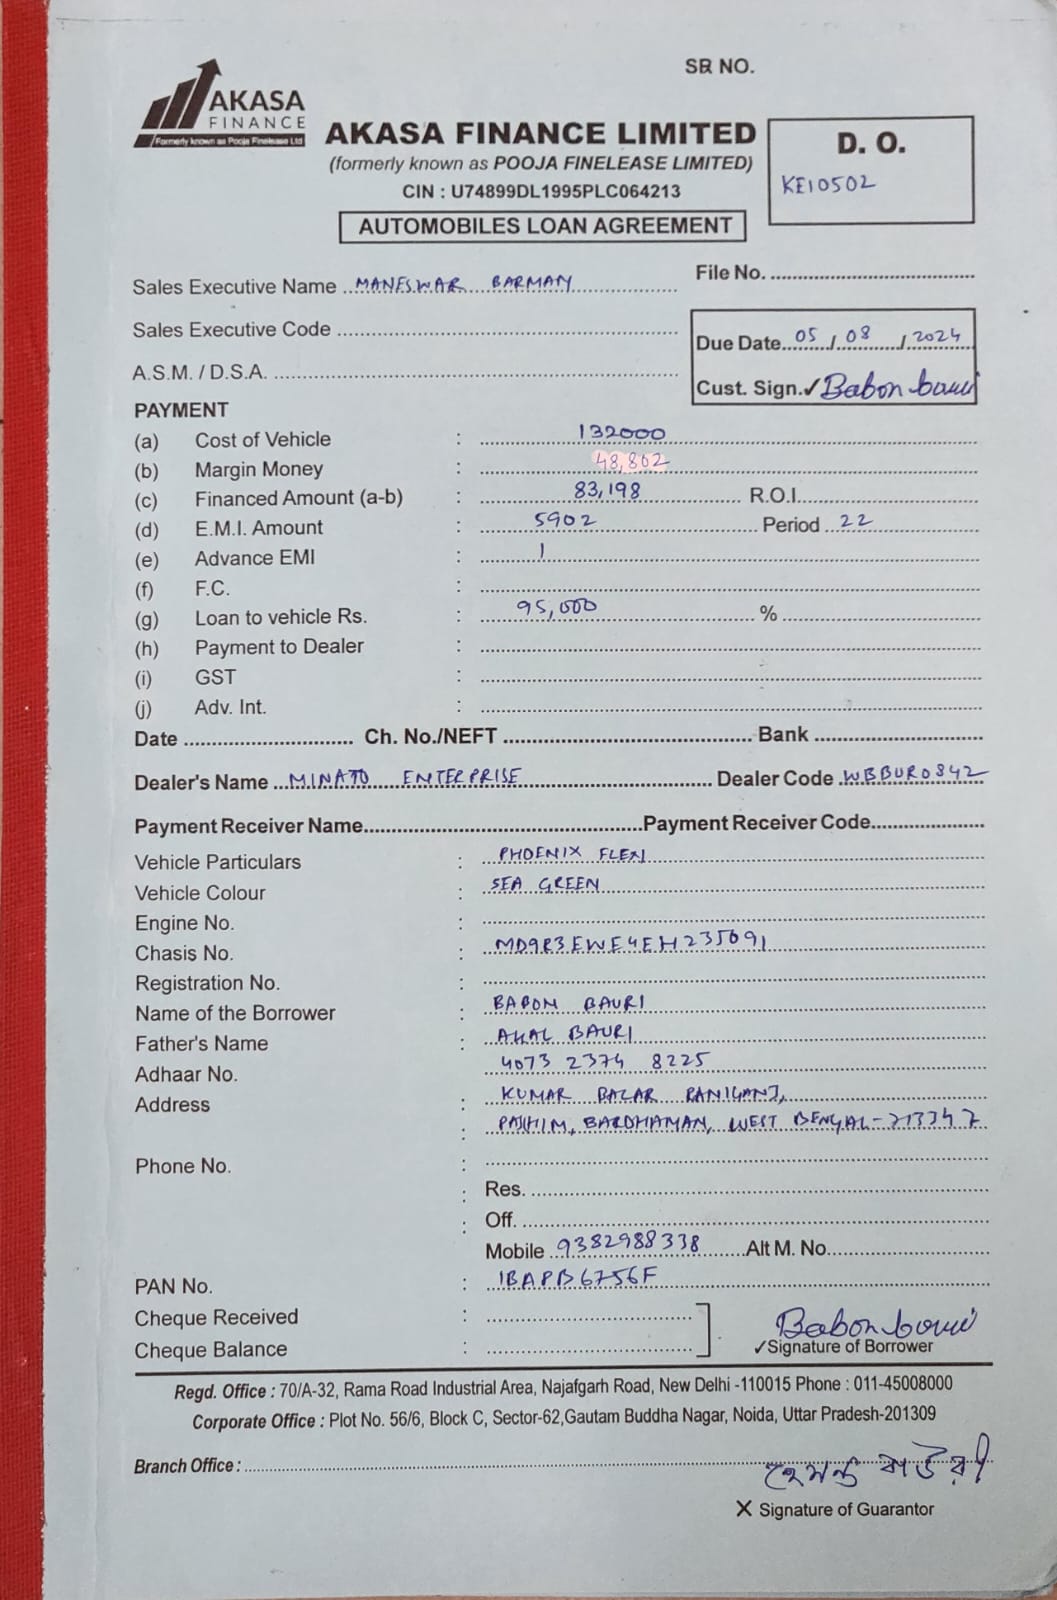 SR NO.
AKASA
FINANCE
Formerly known as Pooja Finelease Ltd
AKASA FINANCE LIMITED
(formerly known as POOJA FINELEASE LIMITED)
CIN : U74899DL1995PLC064213
AUTOMOBILES LOAN AGREEMENT
D. O.
KE10502
Sales Executive Name MANESWAR BARMAN
File No.
Sales Executive Code
A.S.M. / D.S.A.
Due Date 05 / 08 / 2024
Cust. Sign. ✓ Babon bauri
PAYMENT
(a) Cost of Vehicle : 132000
(b) Margin Money : 48,802
(c) Financed Amount (a-b) : 83,198 R.O.I.
(d) E.M.I. Amount : 5902 Period 22
(e) Advance EMI : 1
(f) F.C. :
(g) Loan to vehicle Rs. : 95,000 %
(h) Payment to Dealer :
(i) GST :
(j) Adv. Int. :
Date Ch. No./NEFT Bank
Dealer's Name MINATO ENTERPRISE Dealer Code WBBUR0842
Payment Receiver Name Payment Receiver Code
Vehicle Particulars : PHOENIX FLEXI
Vehicle Colour : SEA GREEN
Engine No. :
Chasis No. : MD9R3EWE4EH235091
Registration No. :
Name of the Borrower : BABON BAURI
Father's Name : AKAL BAURI
Adhaar No. 4073 2374 8225
Address : KUMAR BAZAR RANIGANJ,
: PASHIM, BARDHAMAN, WEST BENGAL-713347
Phone No. :
: Res.
: Off.
Mobile 9382988338 Alt M. No.
PAN No. : IBAPB6756F
Cheque Received :
Cheque Balance :
Babon bauri
✓Signature of Borrower
Regd. Office : 70/A-32, Rama Road Industrial Area, Najafgarh Road, New Delhi -110015 Phone : 011-45008000
Corporate Office : Plot No. 56/6, Block C, Sector-62,Gautam Buddha Nagar, Noida, Uttar Pradesh-201309
Branch Office :
হেমন্ত বাউরী
X Signature of Guarantor